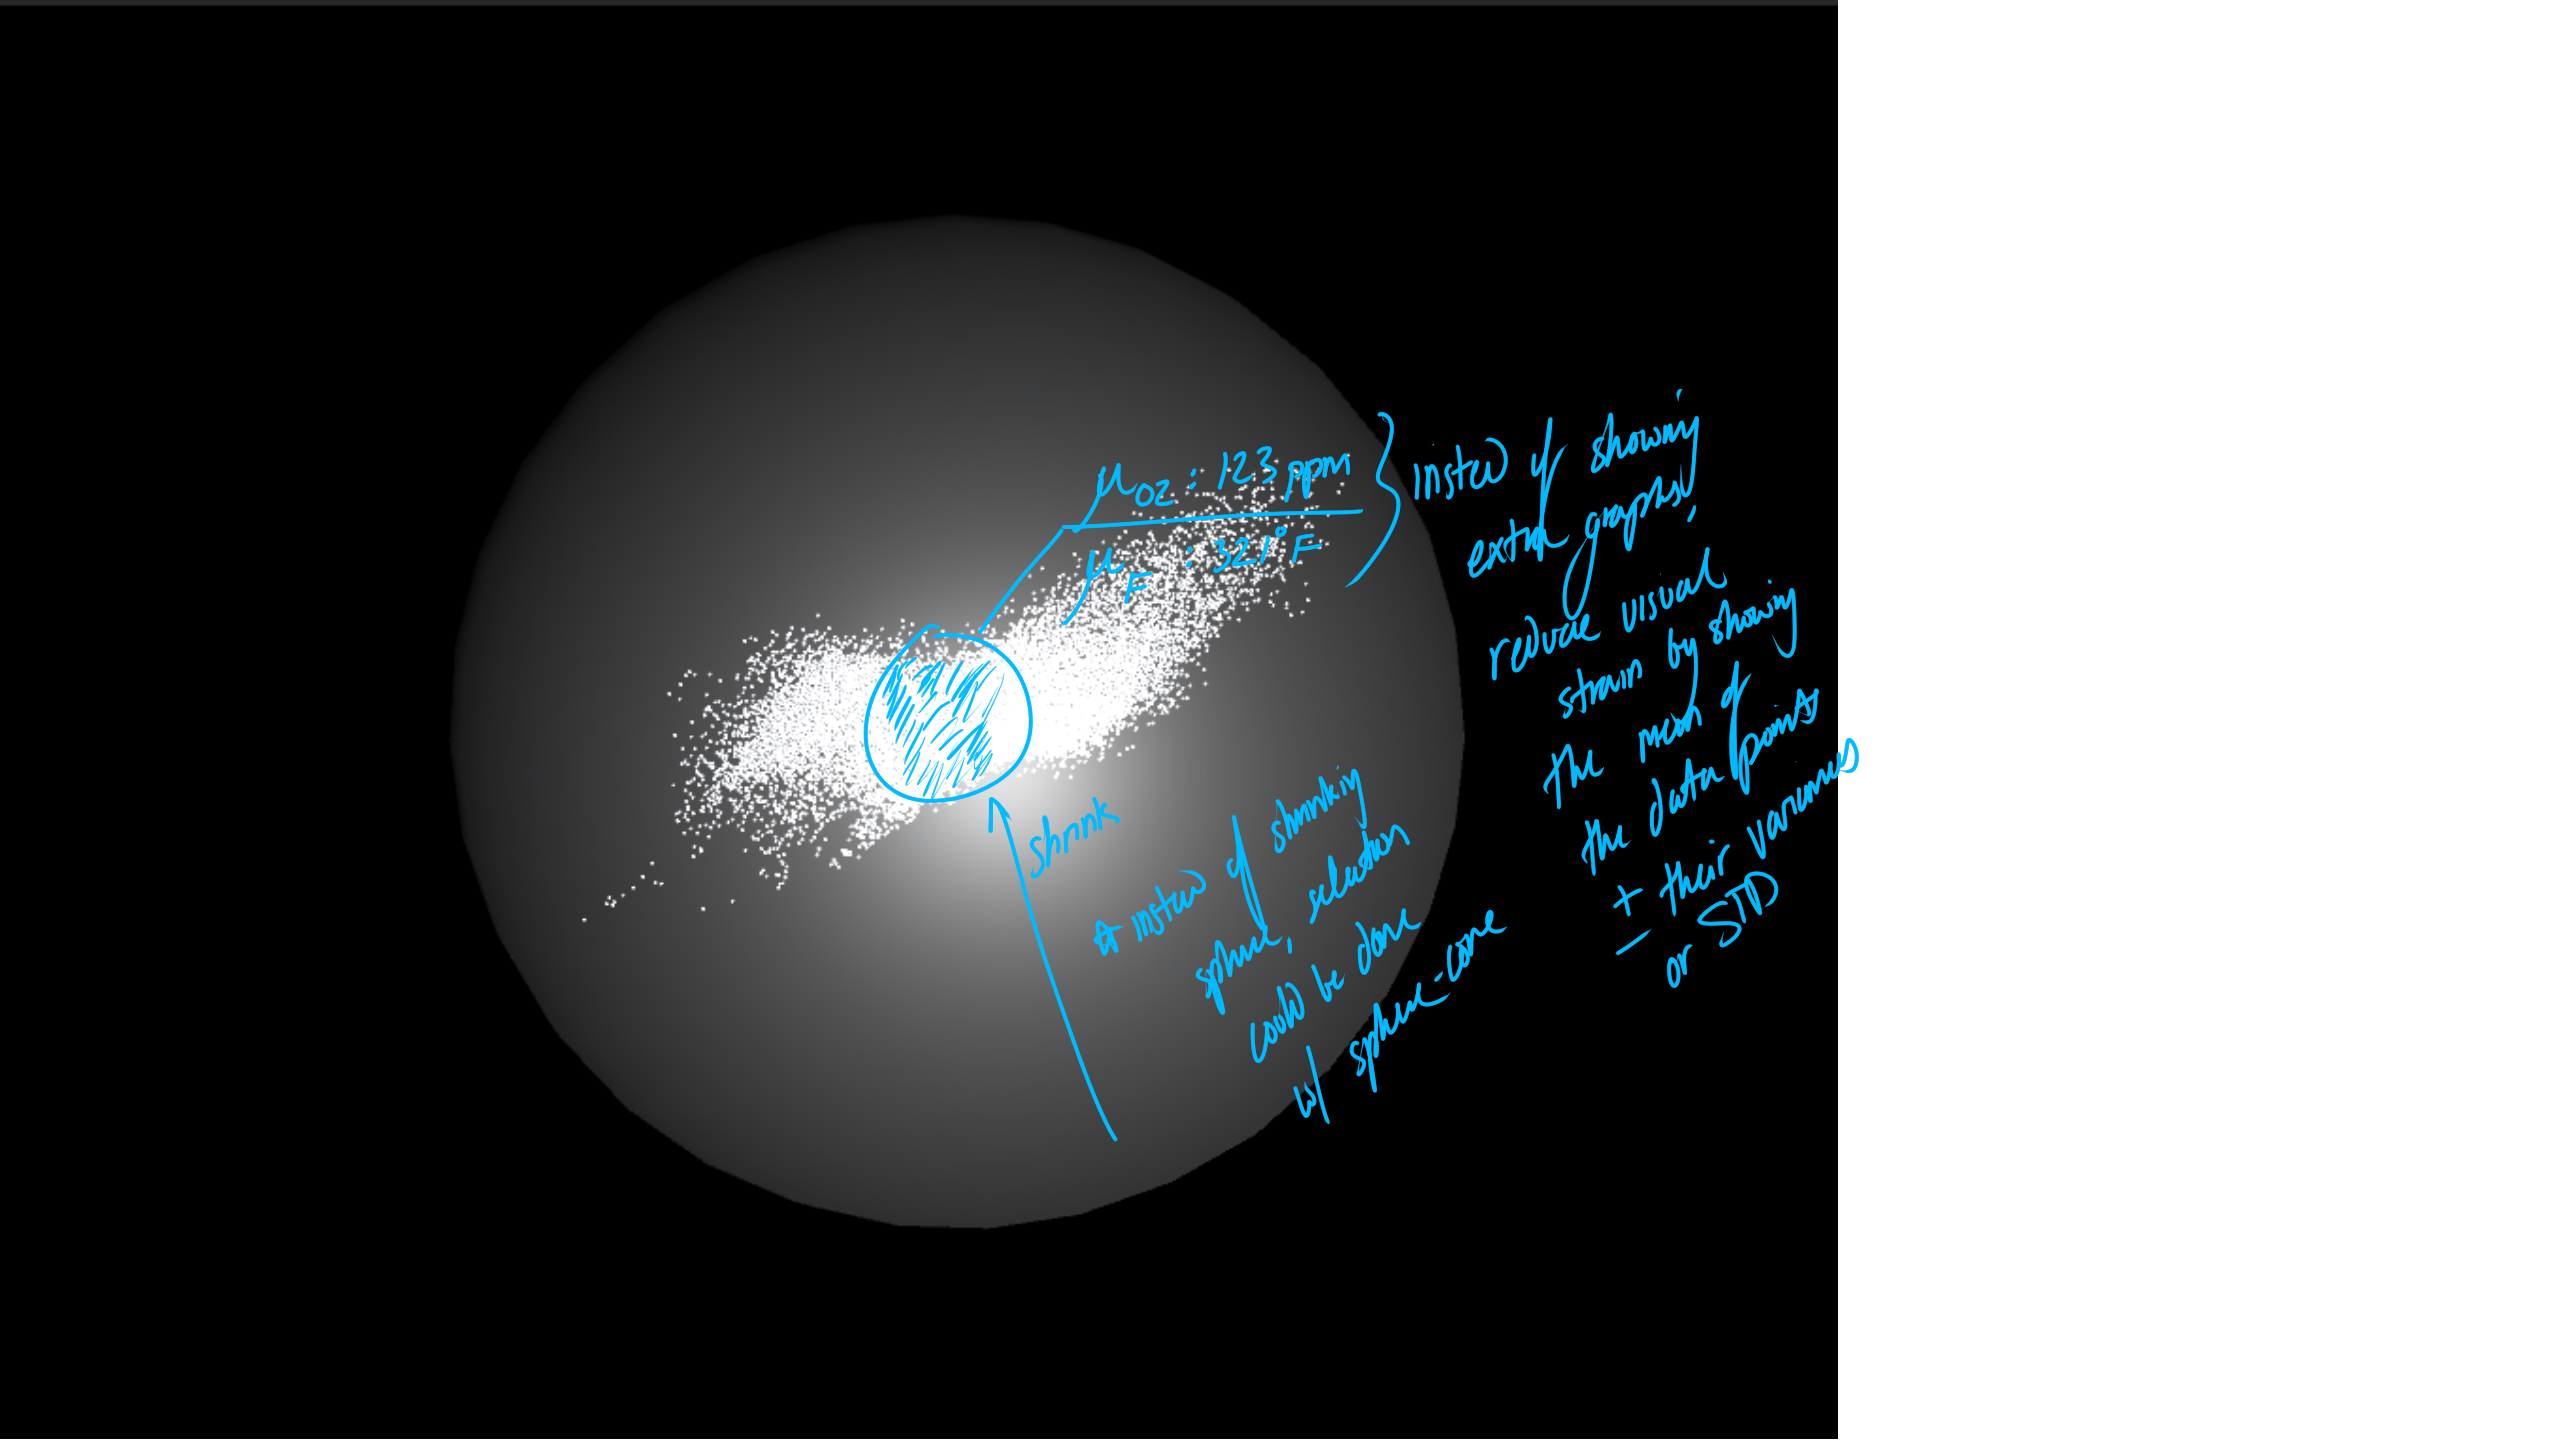 μOZ : 123 ppm
μF : 321°F
instead of showing
extra graphs,
reduce visual
strain by showing
the mean of
the data points
+ their variances
- or STD
shrink
☆ instead of shrinking
sphere, selection
could be done
w/ sphere-cone